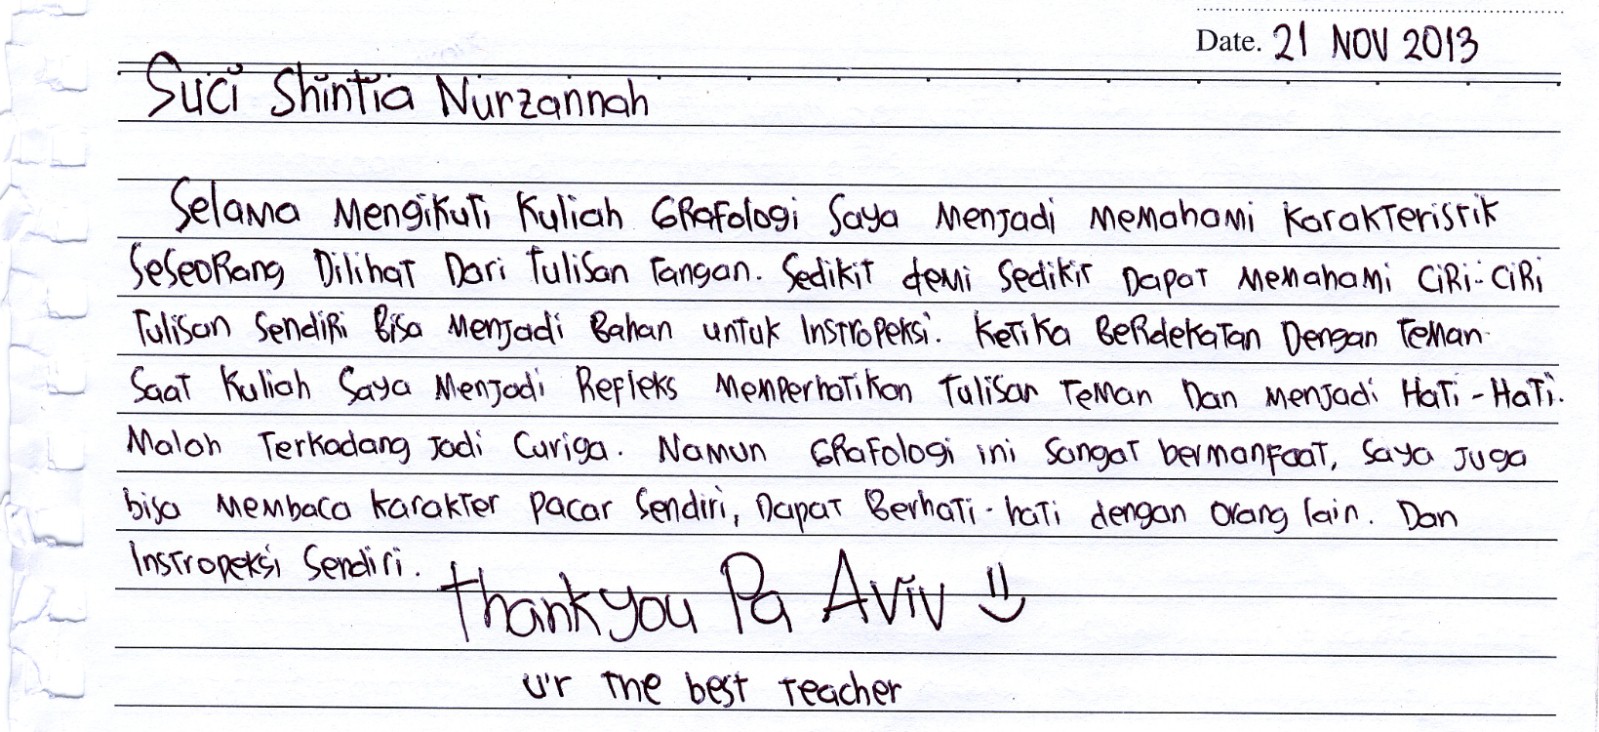 Date. 21 NOV 2013
Suci Shintia Nurzannah
Selama Mengikuti Kuliah GRafologi Saya Menjadi Memahami Karakteristik
SeSeoRang Dilihat Dari Tulisan Tangan. Sedikit demi Sedikit Dapat Memahami CiRi-CiRi
Tulisan SendiRi Bisa Menjadi Bahan untuk Instropeksi. Ketika BeRdekatan Dengan Teman
Saat Kuliah Saya Menjadi Refleks Memperhatikan Tulisan Teman Dan Menjadi Hati-Hati.
Malah Terkadang Jadi Curiga. Namun GRafologi ini Sangat bermanfaat, Saya Juga
bisa Membaca Karakter Pacar Sendiri, Dapat Berhati-hati dengan Orang lain. Dan
Instropeksi Sendiri.
Thankyou Pa Aviv
u'r The best Teacher